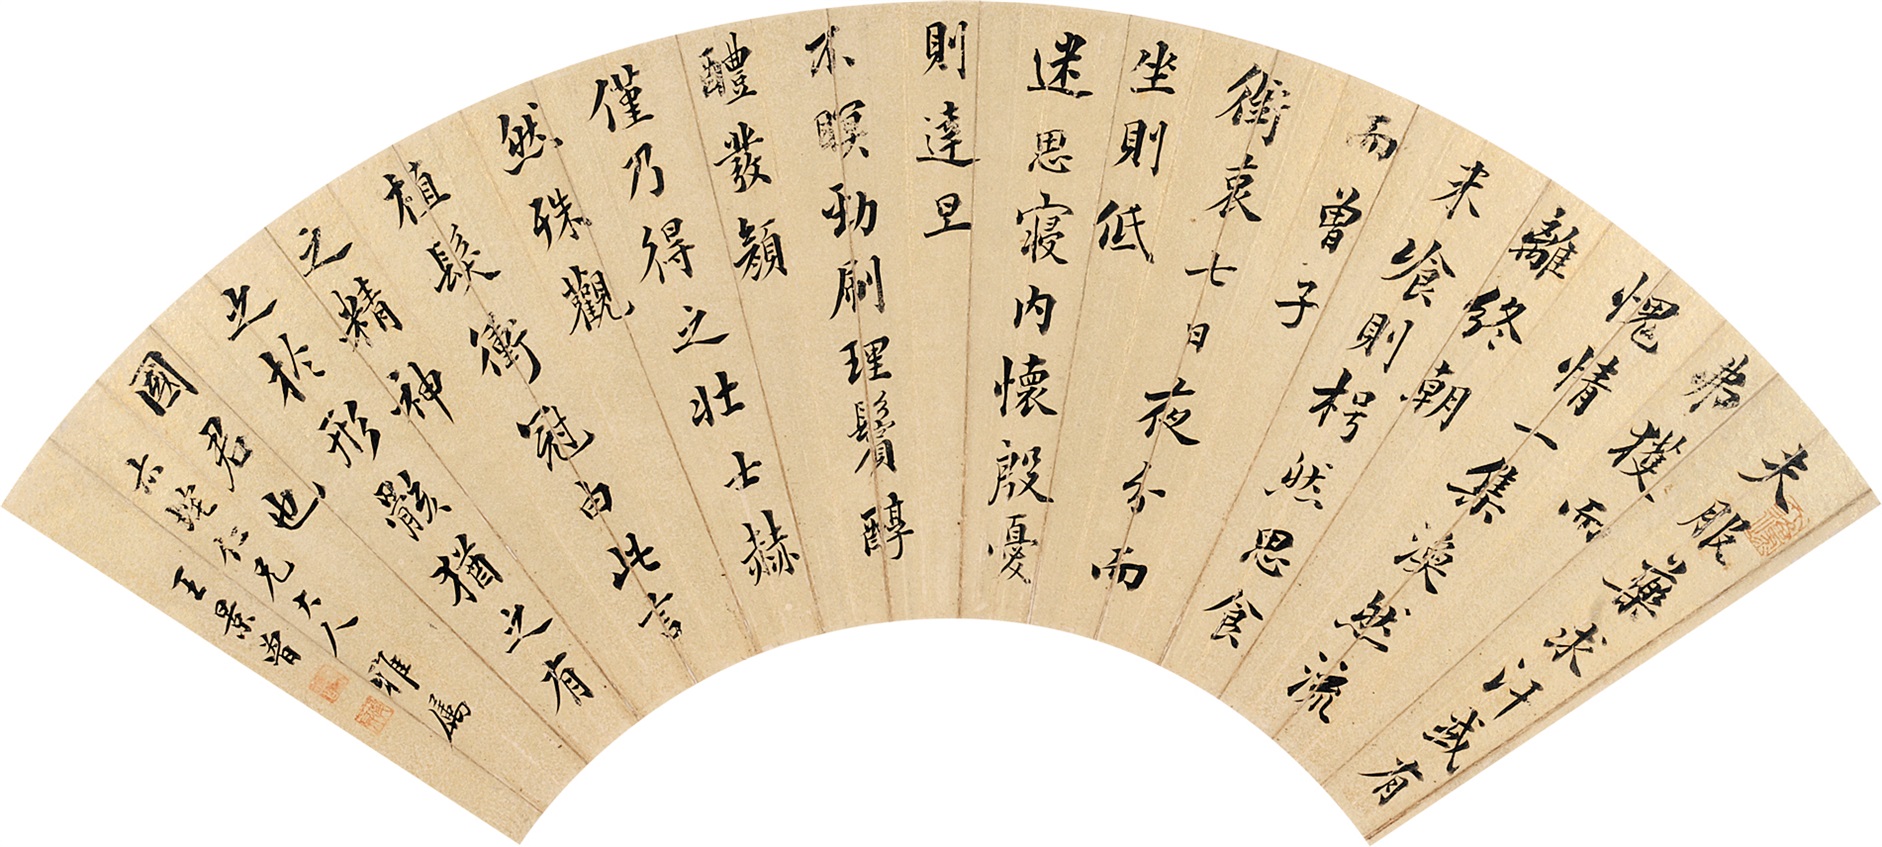 夫服藥求汗或有
弗獲而
愧情一集渙然流
離終朝
未喰則枵然思食
而曾子
銜哀七日夜分而
坐則低
迷思寢內懷殷憂
則達旦
不瞑勁刷理鬢醇
醴發顏
僅乃得之壯士赫
然殊觀
植髮衝冠由此言
之精神
之於形骸猶之有
國君也
仁兄大人雅屬
王景曾